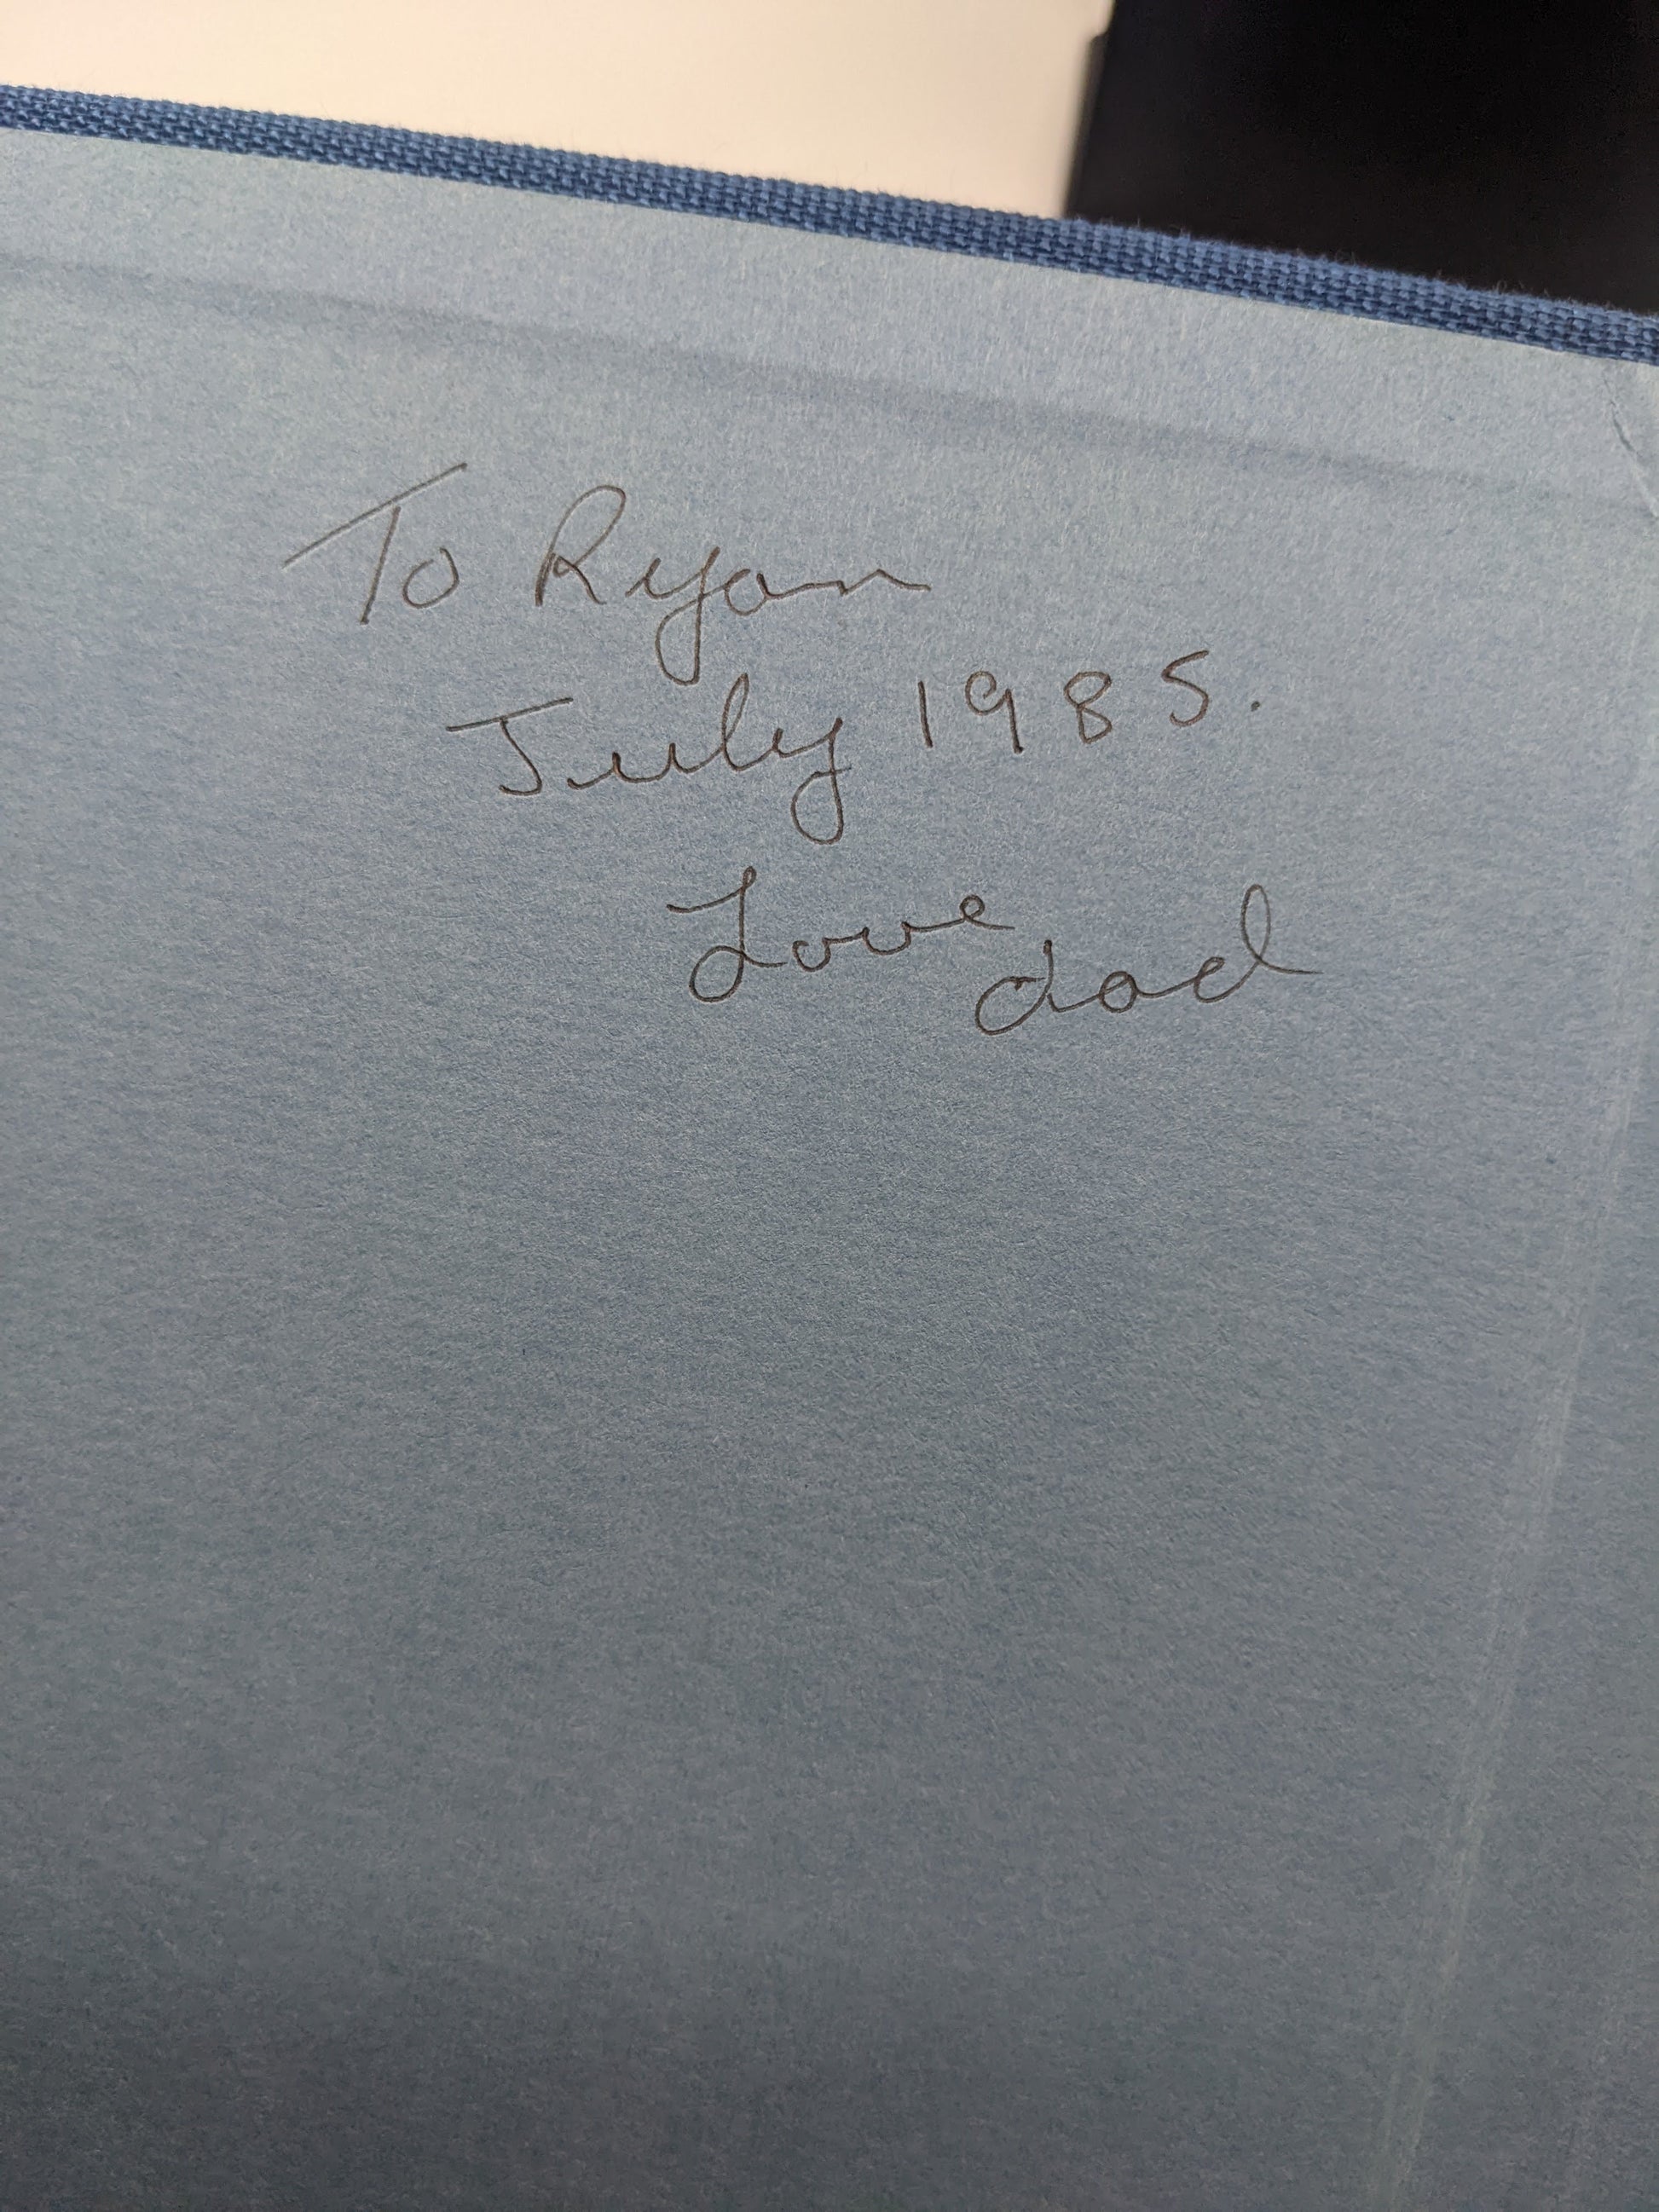 To Ryan
July 1985.
Love
dad